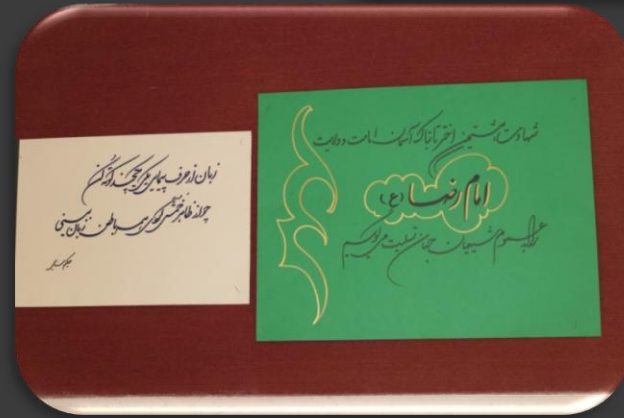 شهادت هشتمین اختر تابناک آسمان امامت و ولایت
امام رضا (ع)
را به عموم شیعیان جهان تسلیت می گوییم
زبان از حرف پیمایی یکچند کوته کن
چو از ظاهر خمش گردی همه باطن زبان بینی